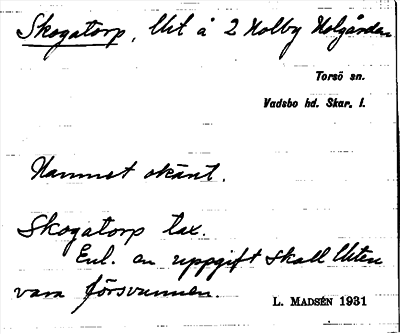 Skogatorp, Utt å 2 Holby Holgården
Torsö sn.
Vadsbo hd. Skar. l.
Namnet okänt.
Skogatorp tax.
Enl. en uppgift skall Utten
vara försvunnen.
L. MADSÉN 1931